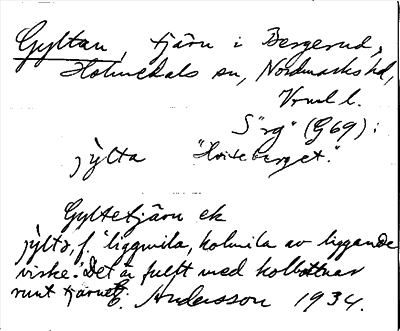 Gyltan, tjärn i Bergerud,
Holmedals sn, Nordmarks hd,
Vrml l.
S "rg" (G69):
jýlta "Hviteberget."
Gyltetjärn ek
jýlta, f. 'liggmila, kolmila av liggande
virke.' Det är fullt med kolbottnar
runt tjärnet. E. Andersson 1934.